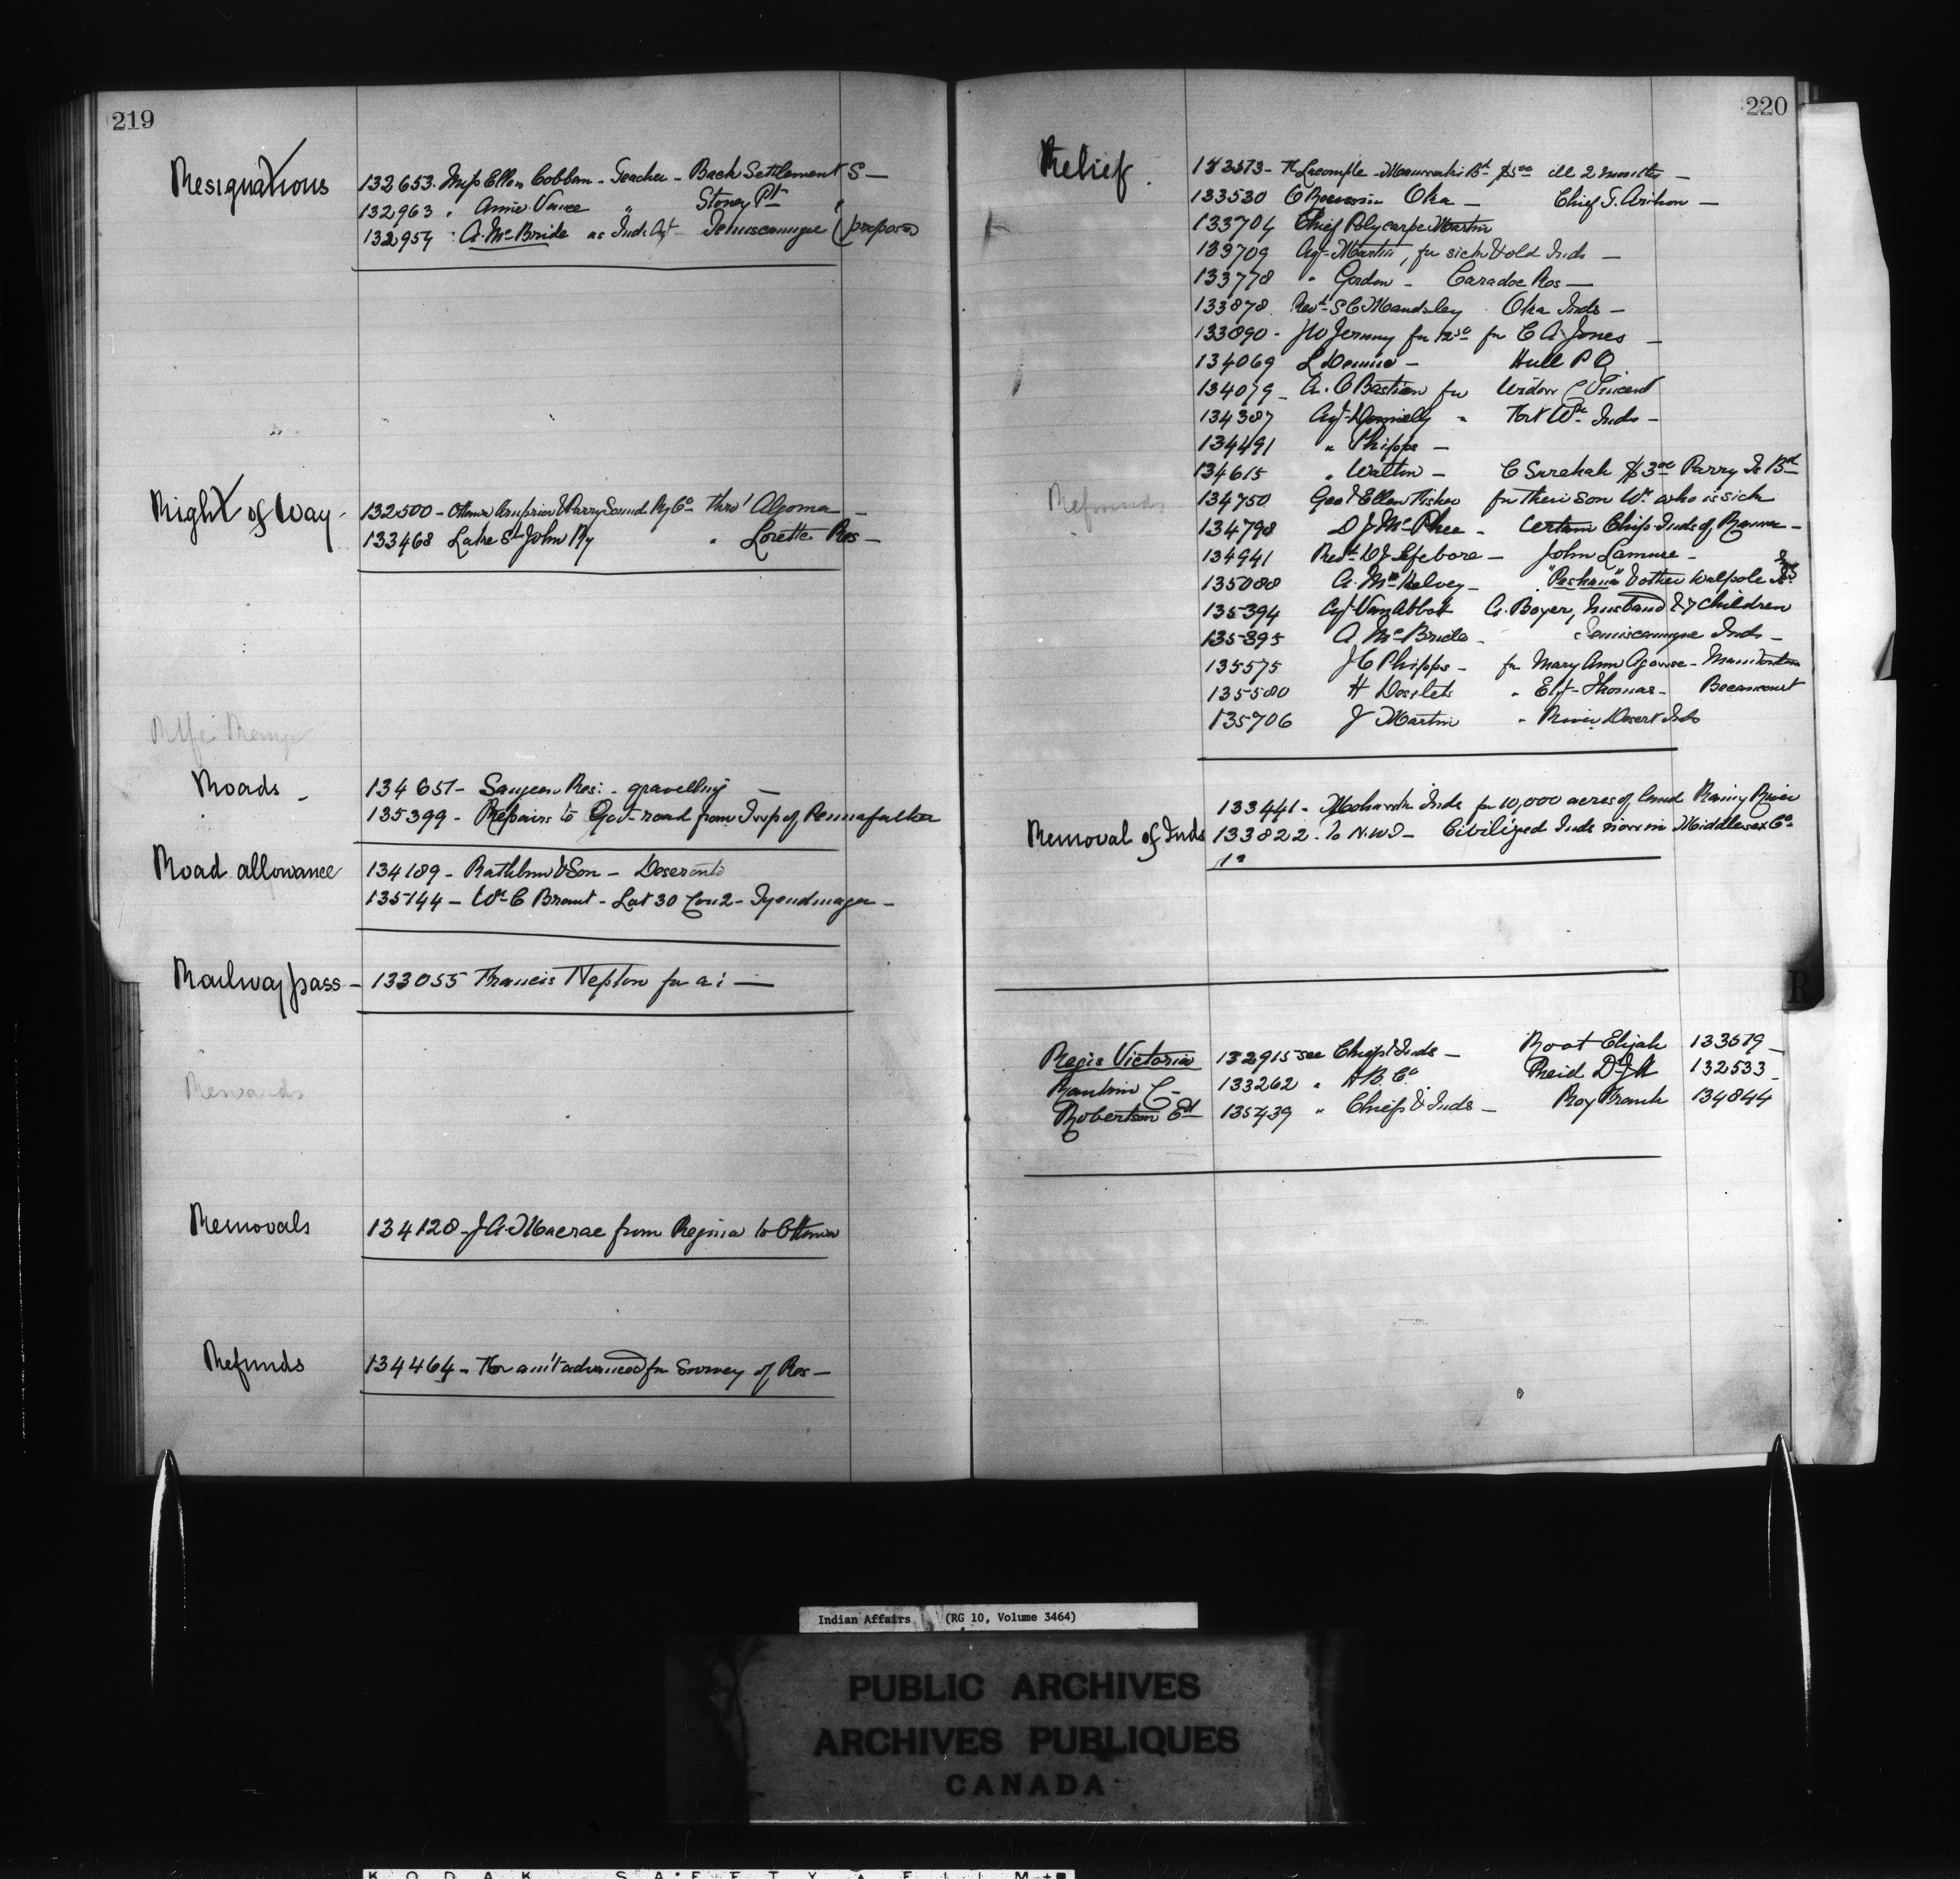 219
Resignations
132653. Miss Ellen Cobban - Teacher - Back Settlement S -
132963 " Annie Vance " Stoney Pt "
132954 " A. McBride as Ind. Agt Temiscamingue (proposed)
Right of Way -
132500 - Ottawa Arnprior & Parry Sound Ry Co thro' Algoma -
133468 Lake St John Ry " Lorette Res -
Rifle Range
Roads -
134651 - Saugeen Res: - gravelling -
135399 - Repairs to Gov- road from Twp of
Road allowance
134189 - Rathbun & Son - Deseronto
135144 - Wm C Brant - Lot 30 Con 2 - Tyendinaga -
Railway pass -
133055 Francis Nepton for a: -
Rewards
Removals
134128 - J. A. Macrae from Regina to Ottawa
Refunds
134464 - For am't advanced for Survey of Res -
220
Relief.
133513 - Maniwaki Bd $5 00 ill 2 months -
133530 Oka - Chief
133704 Chief Polycarpe Martin
133709 Agt Martin, for sick & old Inds -
133778 " Gordon - Caradoc Res -
133878 Revd S C Maudsley . Oka Inds -
133890 - for C A Jones -
134069 L Dennie - Hull P Q
134079 - A. O Bastien for Widow C Vincent
134387 Agt Donnelly " Fort Wm Inds -
134491 " Phipps -
134615 " Walton - $3 00 Parry Is Bd
Refunds
134750 Geo & Ellen Fisher for their son Wm who is sick
134798 D J McPhee - Certain Chip. Inds of Rama -
134941 Revd Lefebvre - John Lamure -
135088 A. McKelvey - & other Walpole Is Inds
135394 Agt Van Abbott A. Boyer, husband & 7 children
135395 A McBride - Temiscamingue Inds -
135575 J C Phipps - for Mary Ann - Manitowaning
135580 H Desilets " Thomas - Becancourt
135706 J Martin " River Desert Inds
Removal of Inds
133441 - Mohawk Inds for 10,000 acres of land Rainy River
133822 - to N.W.T - Civilized Inds now in Middlesex Co
Regis Victoria 132915 see Chiefs & Inds - Root Elijah 133519 -
Rankin C - 133262 " H B. Co. Reid Dr J H 132533 -
Robertson Ed 135439 " Chiefs & Inds - Roy Frank 134844
R
Indian Affairs (RG 10, Volume 3464)
PUBLIC ARCHIVES
ARCHIVES PUBLIQUES
CANADA
KODAK SAFETY FILM